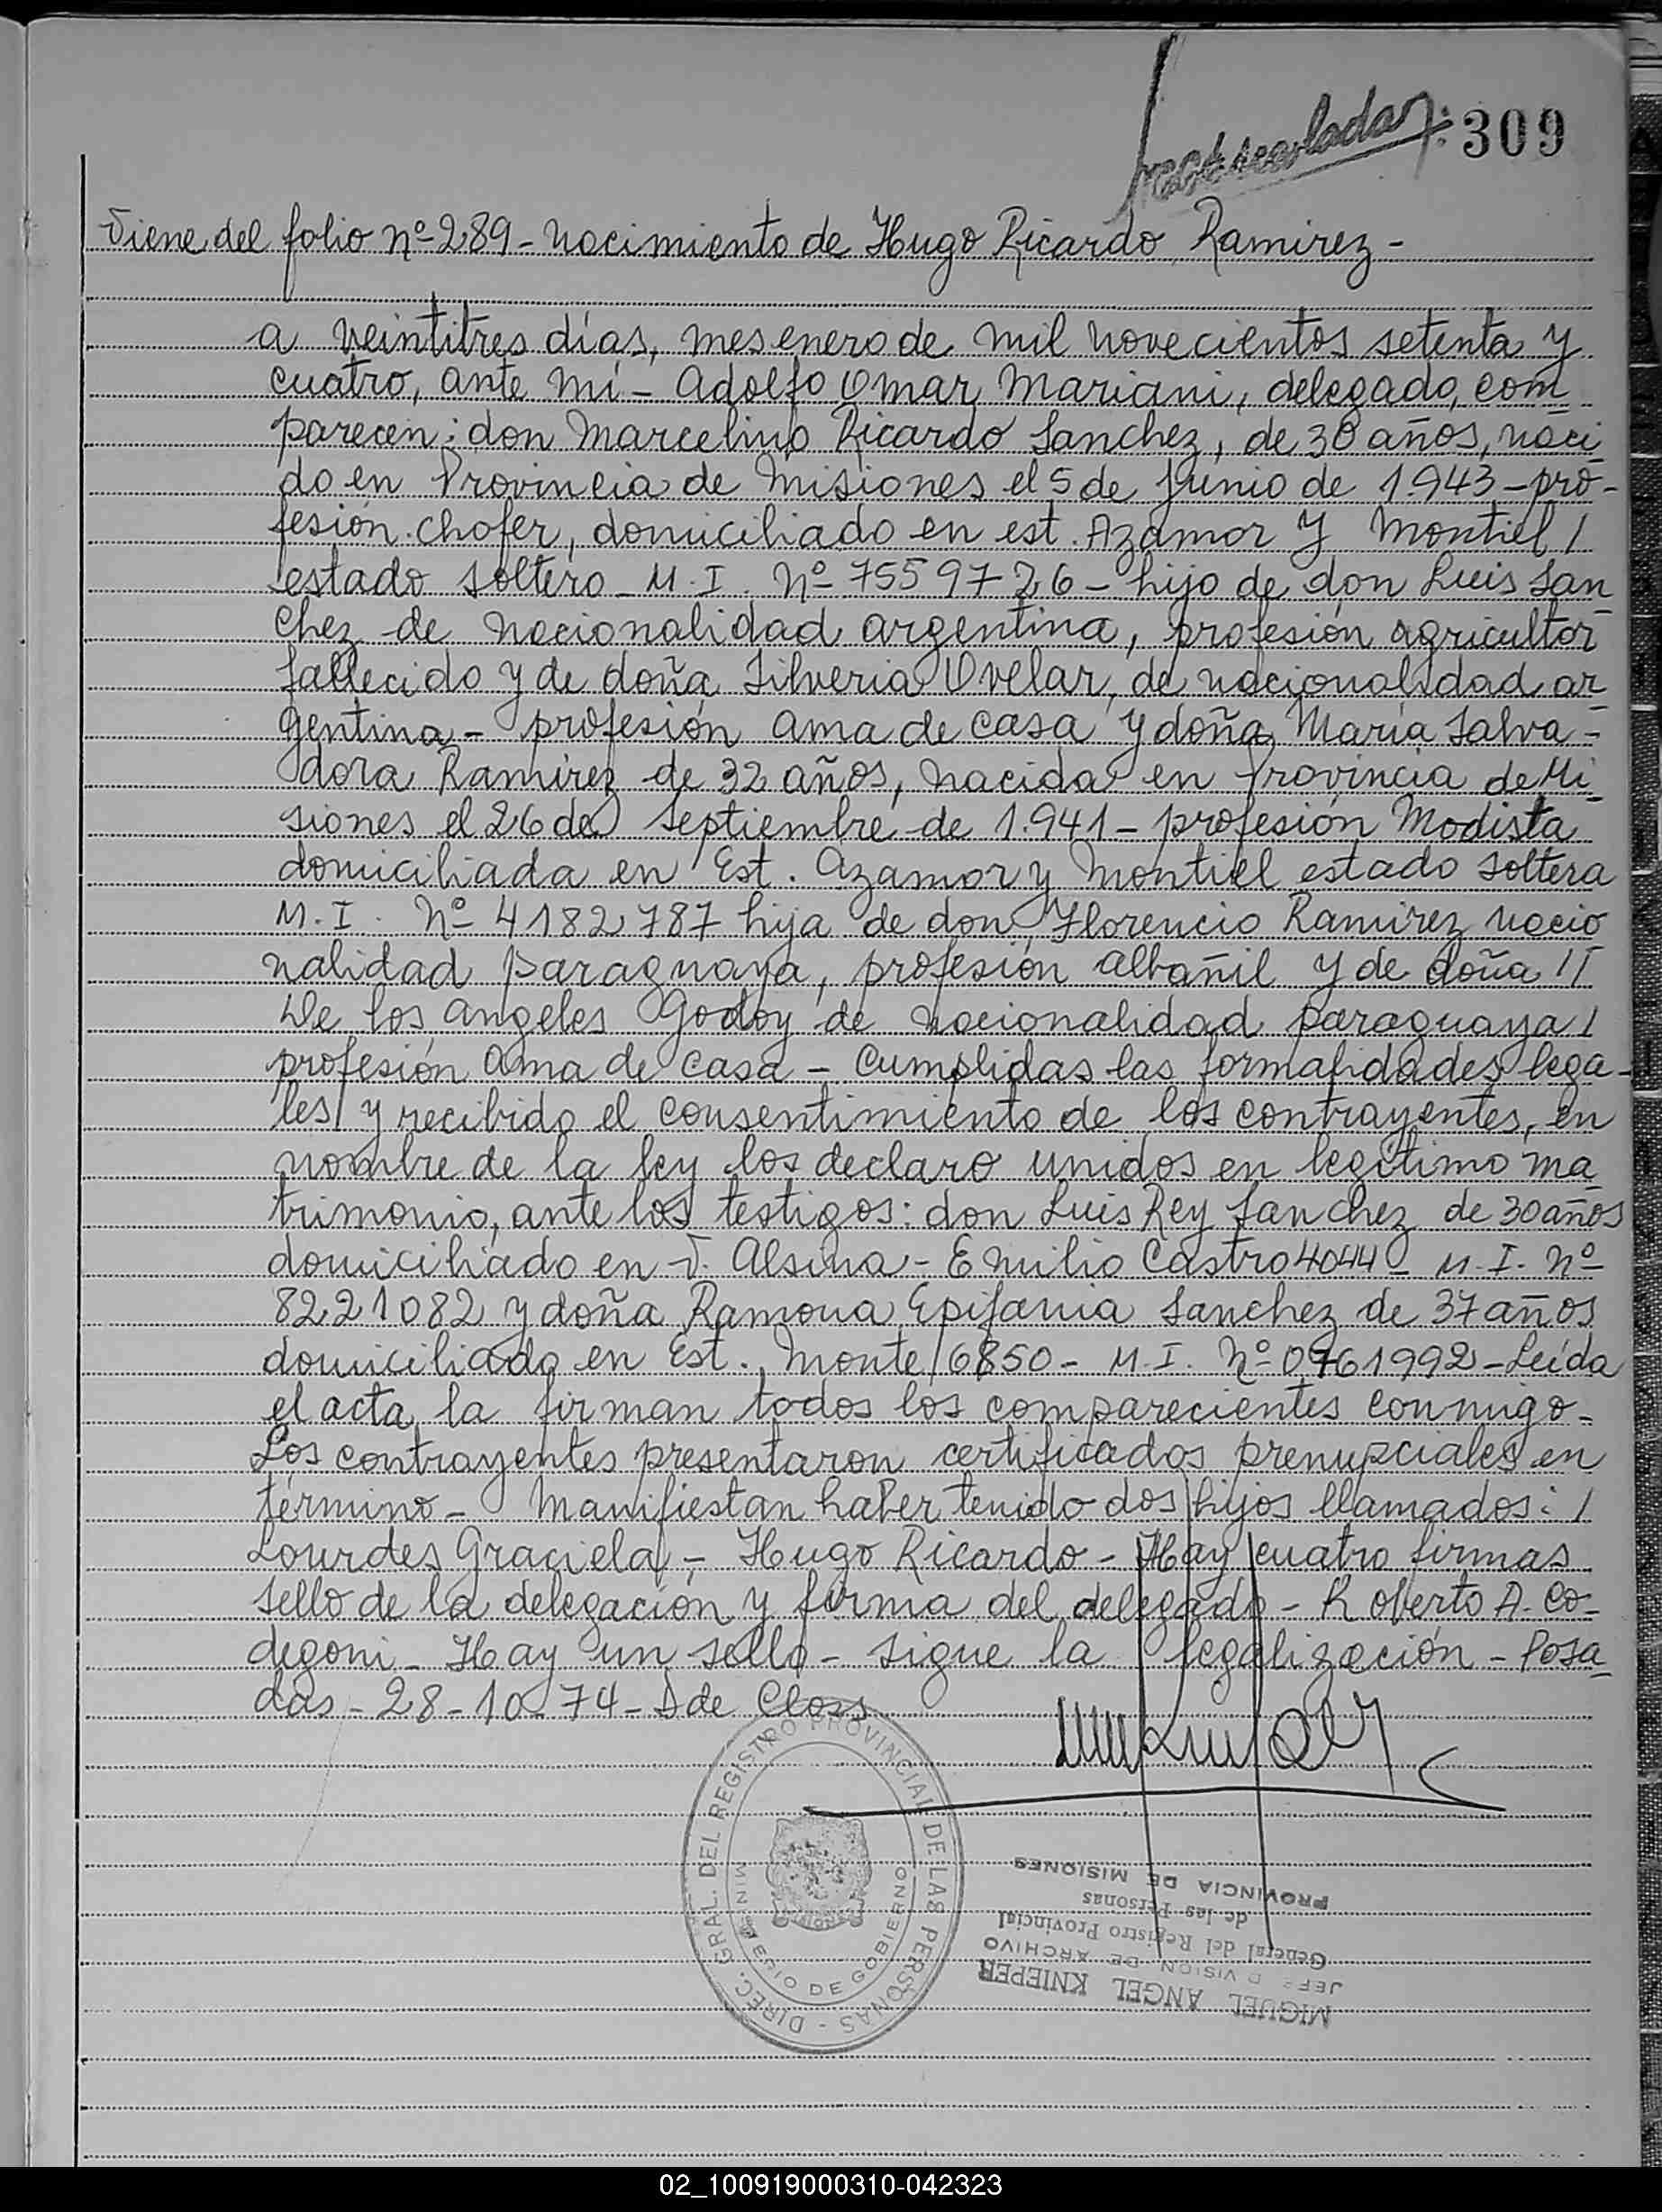 309
Viene del folio nº 289 - nacimiento de Hugo Ricardo Ramirez -
a veintitres días, mes enero de mil novecientos setenta y
cuatro, ante mi - Adolfo Omar Mariani, delegado, com
parecen: don Marcelino Ricardo Sanchez, de 30 años, naci
do en Provincia de Misiones el 5 de Junio de 1.943 - pro-
fesión chofer, domiciliado en est. Azamor y Montiel /
estado soltero - M. I. Nº 7559726 - hijo de don Luis San
chez de nacionalidad argentina, profesión agricultor
fallecido y de doña Silveria Ovelar, de nacionalidad ar
gentina - profesión ama de casa y doña María Salva -
dora Ramirez de 32 años, nacida en Provincia de Mi
siones el 26 de Septiembre de 1.941 - profesión Modista
domiciliada en Est. Azamor y Montiel estado soltera
M. I. Nº 4182787 hija de don Florencio Ramirez nacio
nalidad paraguaya, profesión albañil y de doña //
De los Angeles Godoy de nacionalidad paraguaya /
profesión ama de casa - Cumplidas las formalidades lega -
les y recibido el consentimiento de los contrayentes, en
nombre de la ley los declaro unidos en legítimo ma
trimonio, ante los testigos: don Luis Rey Sanchez de 30 años
domiciliado en V. Alsina - Emilio Castro 4044 - M. I. Nº
8221082 y doña Ramona Epifania Sanchez de 37 años
domiciliada en Est. Monte 6850 - M. I. Nº 0.761992 - Leída
el acta, la firman todos los comparecientes conmigo -
Los contrayentes presentaron certificados prenupciales en
término - Manifiestan haber tenido dos hijos llamados: /
Lourdes Graciela - Hugo Ricardo - Hay cuatro firmas
sello de la delegación y firma del delegado - Roberto A. Co-
degoni - Hay un sello - sigue la legalización - Posa
das - 28 - 10 - 74 - S de Closs
DIREC. GRAL. DEL REGISTRO PROVINCIAL DE LAS PERSONAS -
MINISTERIO DE GOBIERNO
MISIONES
MIGUEL ANGEL KNIEPER
JEFE DIVISION DE ARCHIVO
General del Registro Provincial
de las Personas
PROVINCIA DE MISIONES
02_100919000310-042323